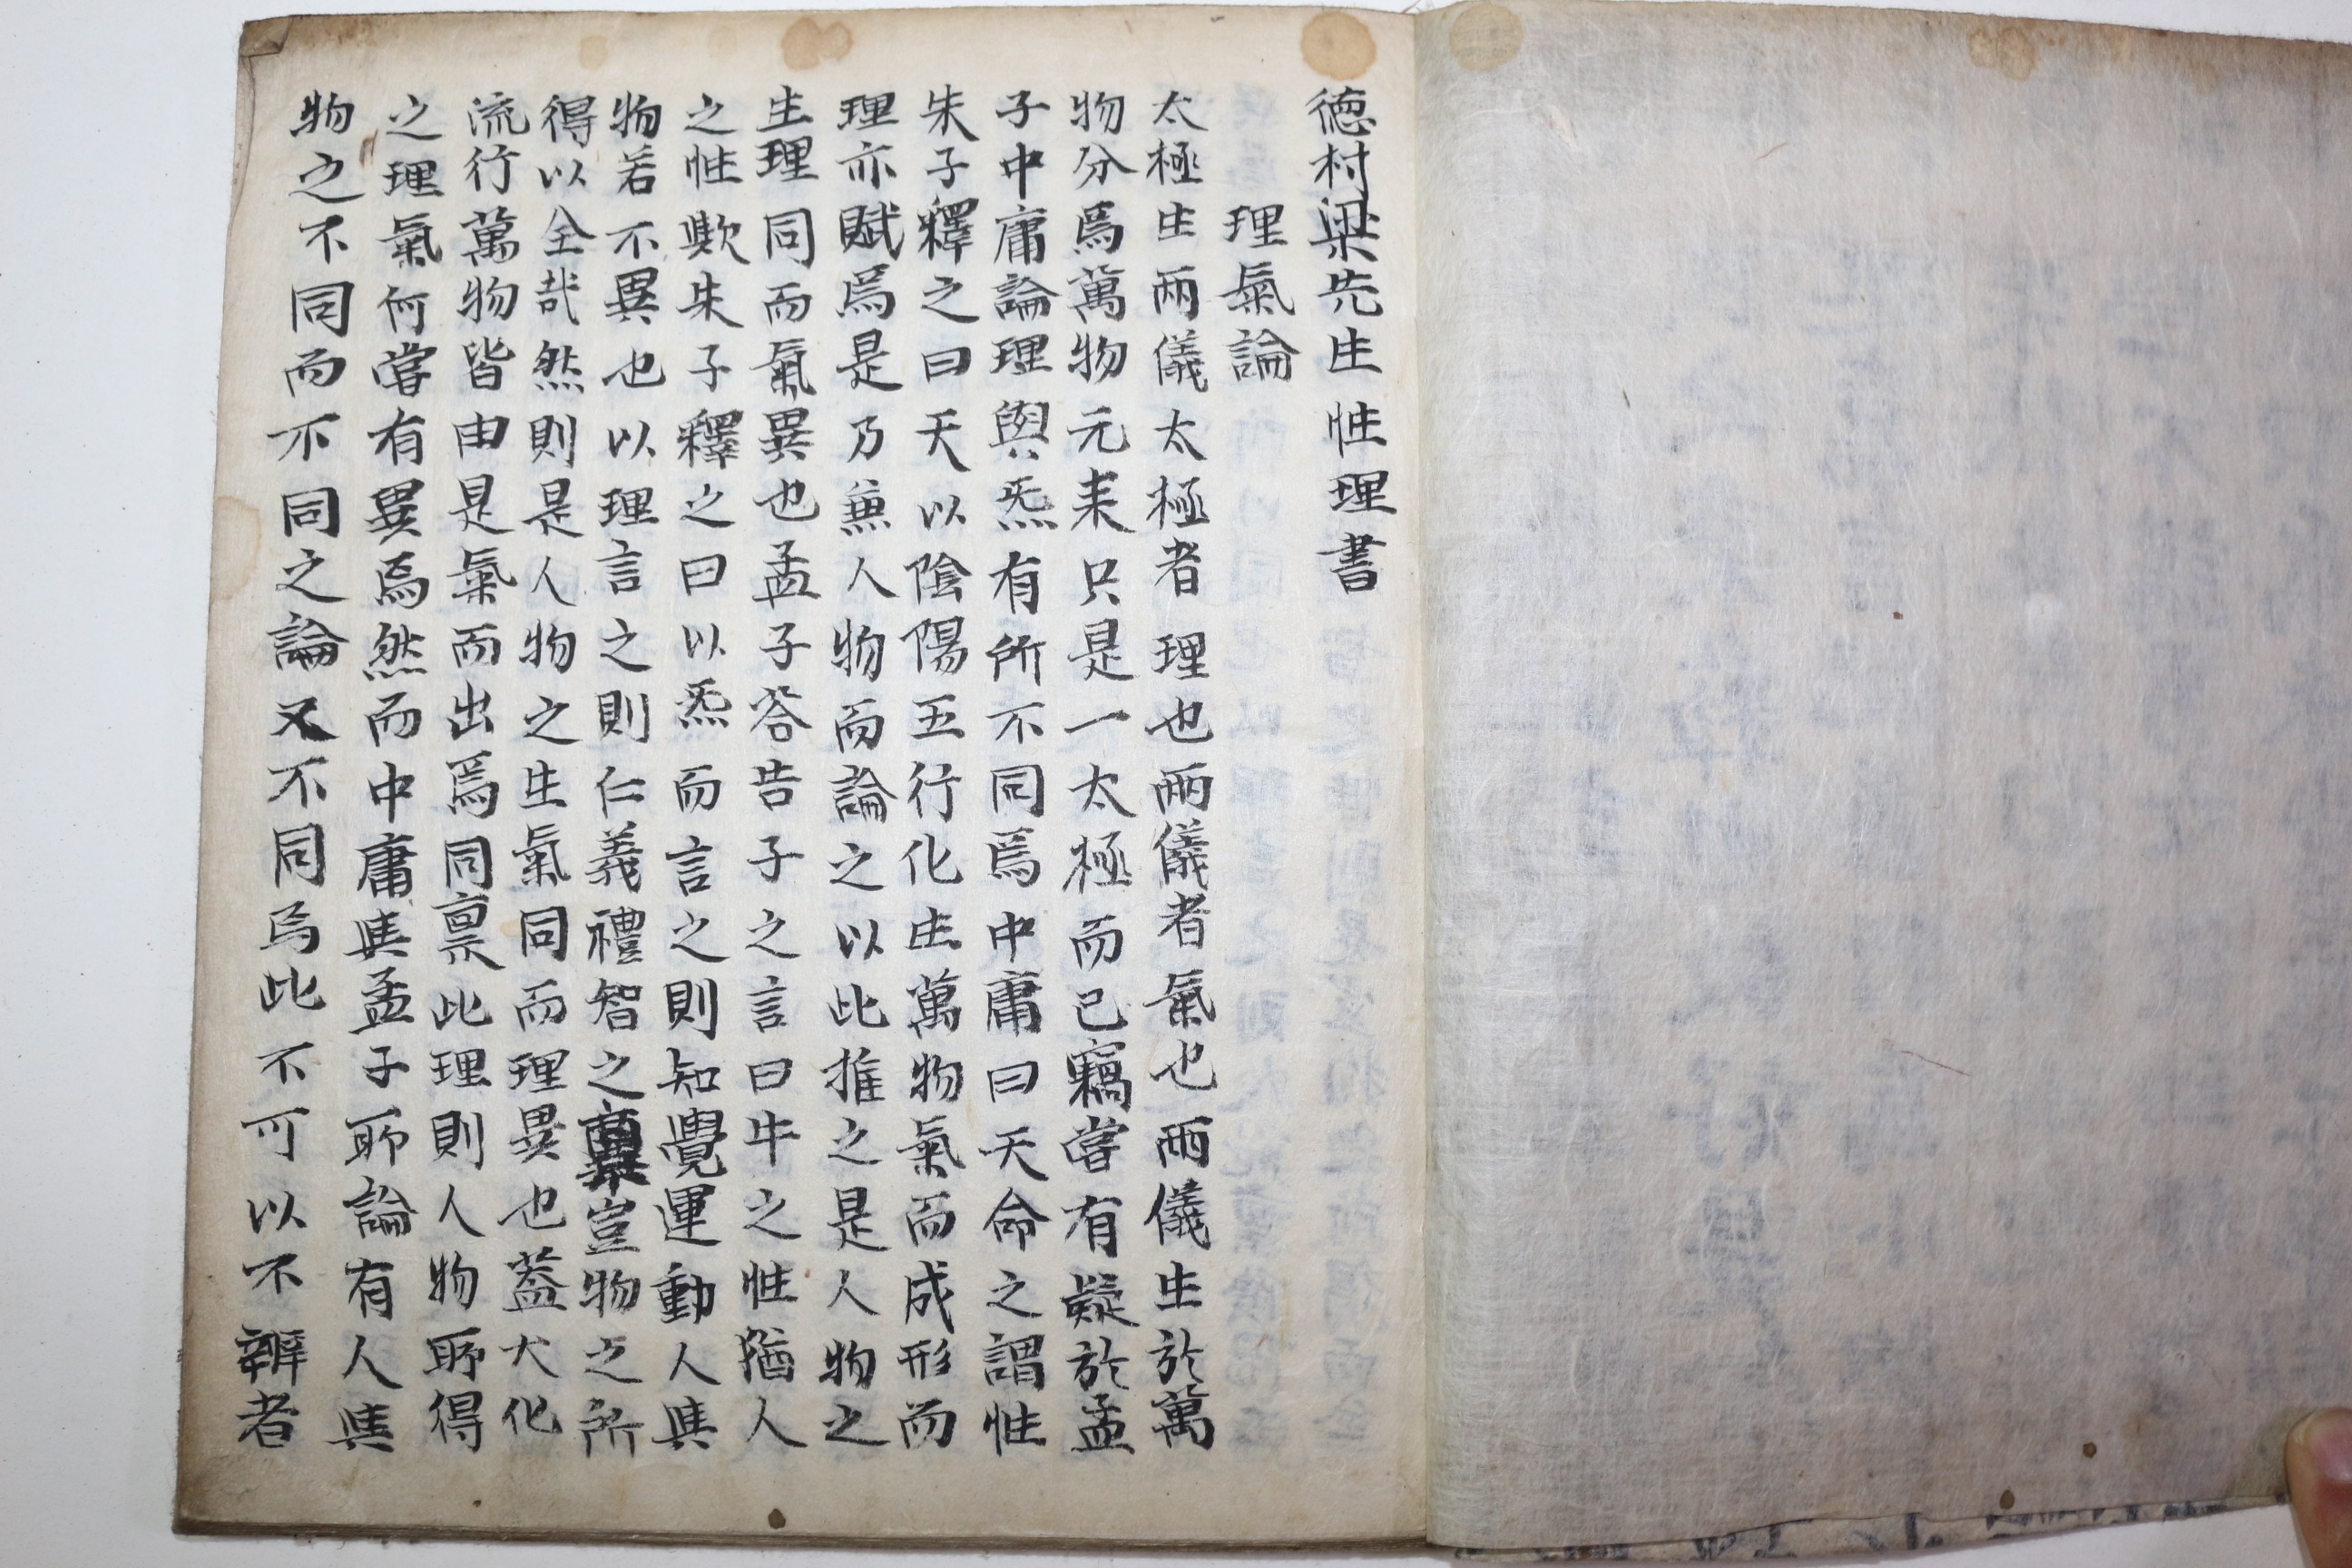 德村梁先生性理書
理氣論
太極生兩儀太極者理也兩儀者氣也兩儀生於萬
物分爲萬物元來只是一太極而已竊嘗有疑於孟
子中庸論理與炁有所不同焉中庸曰天命之謂性
朱子釋之曰天以陰陽五行化生萬物氣而成形而
理亦賦焉是乃兼人物而論之以此推之是人物之
生理同而氣異也孟子答告子之言曰牛之性猶人
之性歟朱子釋之曰以炁而言之則知覺運動人與
物若不異也以理言之則仁義禮智之稟豈物之所
得以全哉然則是人物之生氣同而理異也蓋大化
流行萬物皆由是氣而出焉同稟此理則人物所得
之理氣何嘗有異焉然而中庸與孟子所論有人與
物之不同而不同之論又不同焉此不可以不辨者